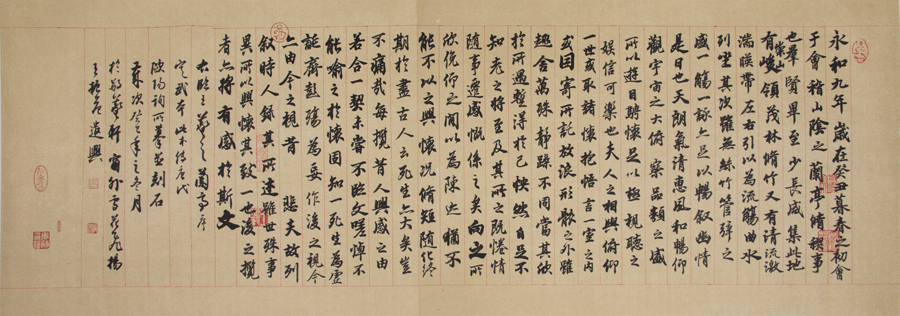 永和九年歲在癸丑暮春之初會
于會稽山陰之蘭亭脩稧事
也羣賢畢至少長咸集此地
有崇山峻領茂林脩竹又有清流激
湍暎帶左右引以為流觴曲水
列坐其次雖無絲竹管弦之
盛一觴一詠亦足以暢敘幽情
是日也天朗氣清惠風和暢仰
觀宇宙之大俯察品類之盛
所以遊目騁懷足以極視聽之
娛信可樂也夫人之相與俯仰
一世或取諸懷抱悟言一室之内
或因寄所託放浪形骸之外雖
趣舍萬殊靜躁不同當其欣
於所遇暫得於己快然自足不
知老之將至及其所之既惓情
隨事遷感慨係之矣向之所
欣俛仰之間以為陳迹猶不
能不以之興懷况脩短隨化終
期於盡古人云死生亦大矣豈
不痛哉每攬昔人興感之由
若合一契未嘗不臨文嗟悼不
能喻之於懷固知一死生為虛
誕齊彭殤為妄作後之視今
亦由今之視昔悲夫故列
敘時人錄其所述雖世殊事
異所以興懷其致一也後之攬
者亦將有感於斯文
右臨王羲之蘭亭序
定武本此本傳唐代
歐陽詢所摹並刻石
之冬月